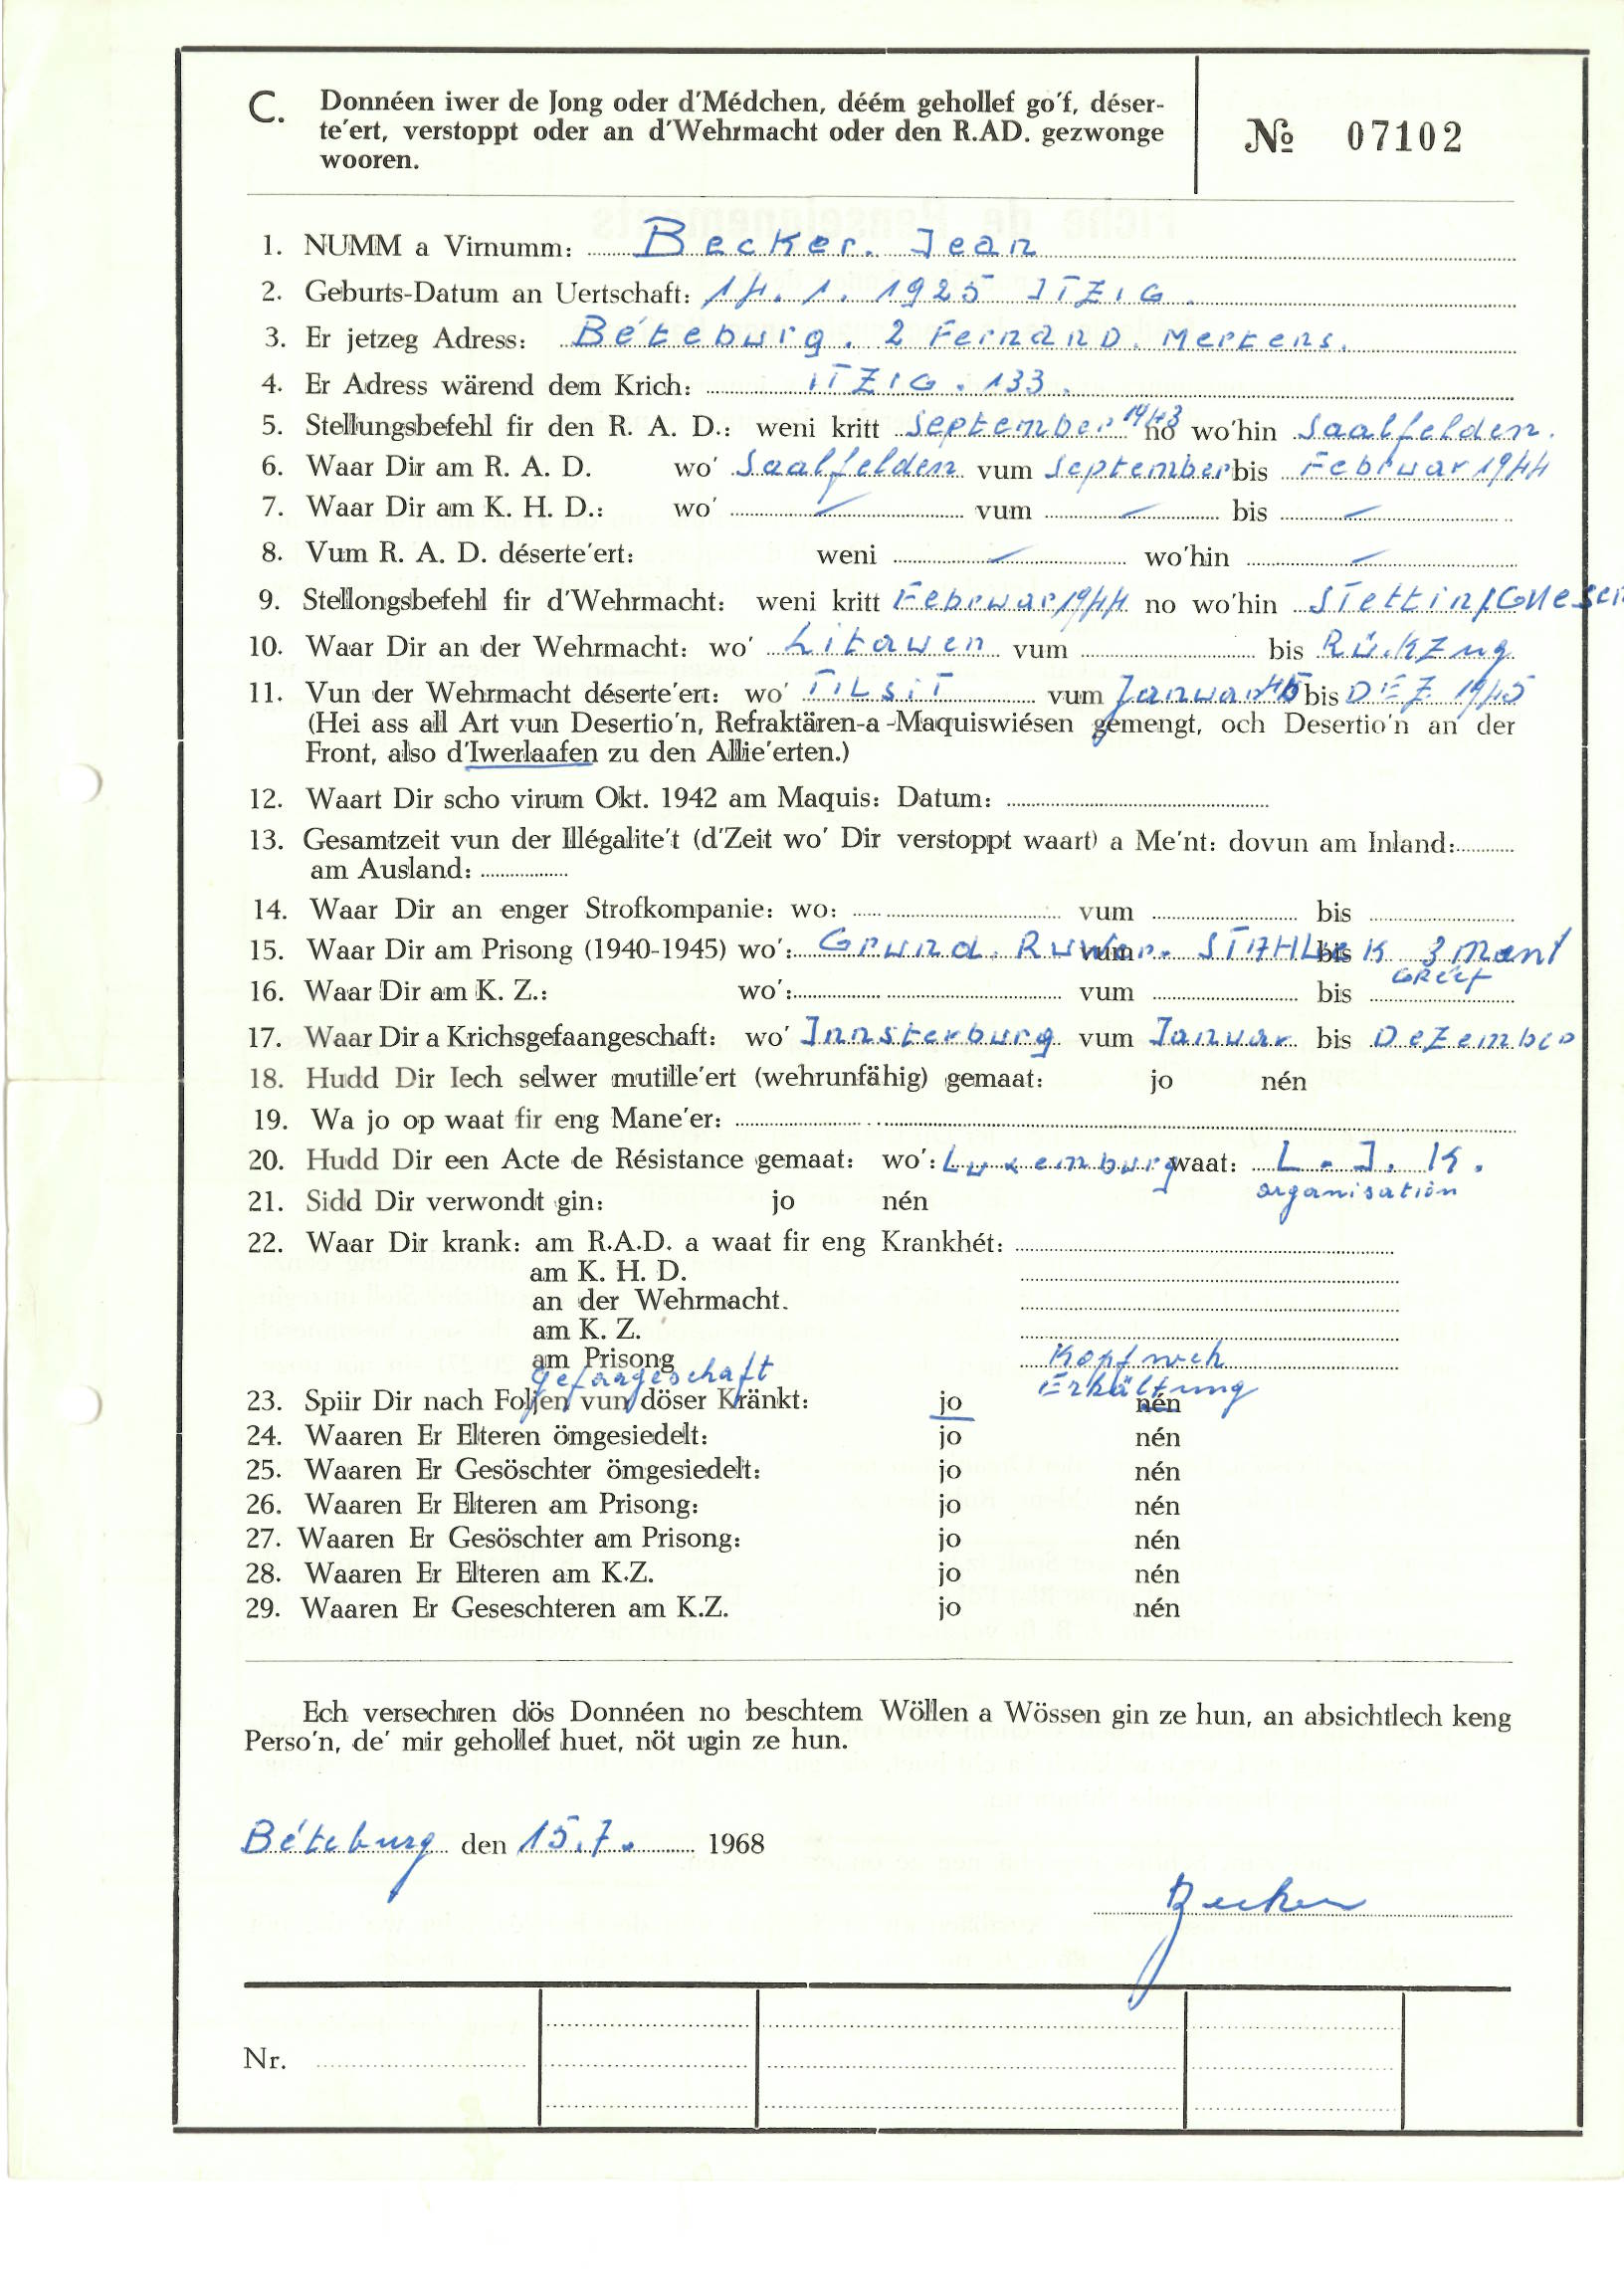 C. Donnéen iwer de Jong oder d'Médchen, déém gehollef go'f, déser-
te'ert, verstoppt oder an d'Wehrmacht oder den R.AD. gezwonge
wooren.
№ 07102
1. NUMM a Virnumm: Becker. Jean
2. Geburts-Datum an Uertschaft: 14. 1. 1925 ITZIG.
3. Er jetzeg Adress: Béteburg. 2 Fernand. Mertens.
4. Er Adress wärend dem Krich: ITZIG. 133.
5. Stellungsbefehl fir den R. A. D.: weni kritt September 1943 no wo'hin Saalfelden.
6. Waar Dir am R. A. D. wo' Saalfelden vum September bis Februar 1944
7. Waar Dir am K. H. D.: wo' — vum — bis —
8. Vum R. A. D. déserte'ert: weni — wo'hin —
9. Stellongsbefehl fir d'Wehrmacht: weni kritt Februar 1944 no wo'hin Stettin/Gnesen
10. Waar Dir an der Wehrmacht: wo' Litauen vum bis Rückzug
11. Vun der Wehrmacht déserte'ert: wo' TILSIT vum Januar 45 bis DEZ 1945
(Hei ass all Art vun Desertio'n, Refraktären-a-Maquiswiésen gemengt, och Desertio'n an der
Front, also d'Iwerlaafen zu den Allie'erten.)
12. Waart Dir scho virum Okt. 1942 am Maquis: Datum:
13. Gesamtzeit vun der Illégalite't (d'Zeit wo' Dir verstoppt waart) a Me'nt: dovun am Inland:
am Ausland:
14. Waar Dir an enger Strofkompanie: wo: vum bis
15. Waar Dir am Prisong (1940-1945) wo': Grund. Ruwer. STAHLeK vum bis 3 Mant
16. Waar Dir am K. Z.: wo': vum bis
17. Waar Dir a Krichsgefaangeschaft: wo' Innsterburg vum Januar bis Dezember
18. Hudd Dir Iech selwer mutille'ert (wehrunfähig) gemaat: jo nén
19. Wa jo op waat fir eng Mane'er:
20. Hudd Dir een Acte de Résistance gemaat: wo': Luxemburg waat: L. J. K.
organisation
21. Sidd Dir verwondt gin: jo nén
22. Waar Dir krank: am R.A.D. a waat fir eng Krankhét:
am K. H. D.
an der Wehrmacht.
am K. Z.
am Prisong Kopfweh
gefaageschaft Erkältung
23. Spiir Dir nach Foljen vun döser Kränkt: jo nén
24. Waaren Er Elteren ömgesiedelt: jo nén
25. Waaren Er Gesöschter ömgesiedelt: jo nén
26. Waaren Er Elteren am Prisong: jo nén
27. Waaren Er Gesöschter am Prisong: jo nén
28. Waaren Er Elteren am K.Z. jo nén
29. Waaren Er Geseschteren am K.Z. jo nén
Ech versechren dös Donnéen no beschtem Wöllen a Wössen gin ze hun, an absichtlech keng
Perso'n, de' mir gehollef huet, nöt ugin ze hun.
Béteburg den 15.7. 1968
Becker
Nr.